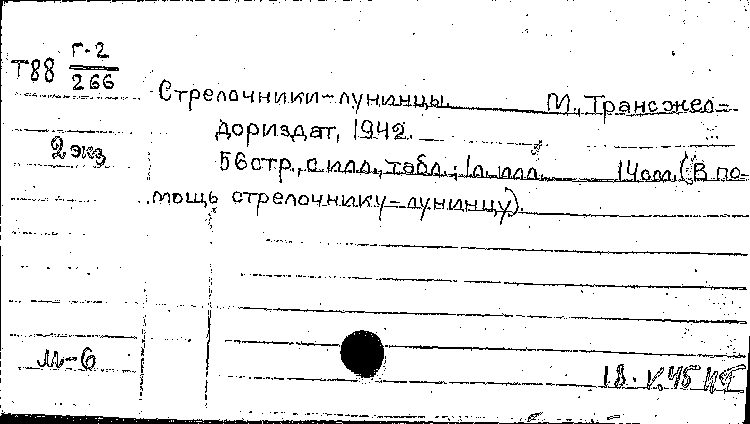 Г-2
Т88 266
Стрелочники-лунинцы. М., Трансжел-
дориздат, 1942.
2 экз
56 стр., с илл., табл.; 1 л. илл. 14 см. (В по-
мощь стрелочнику-лунинцу).
М-6
18.V.45